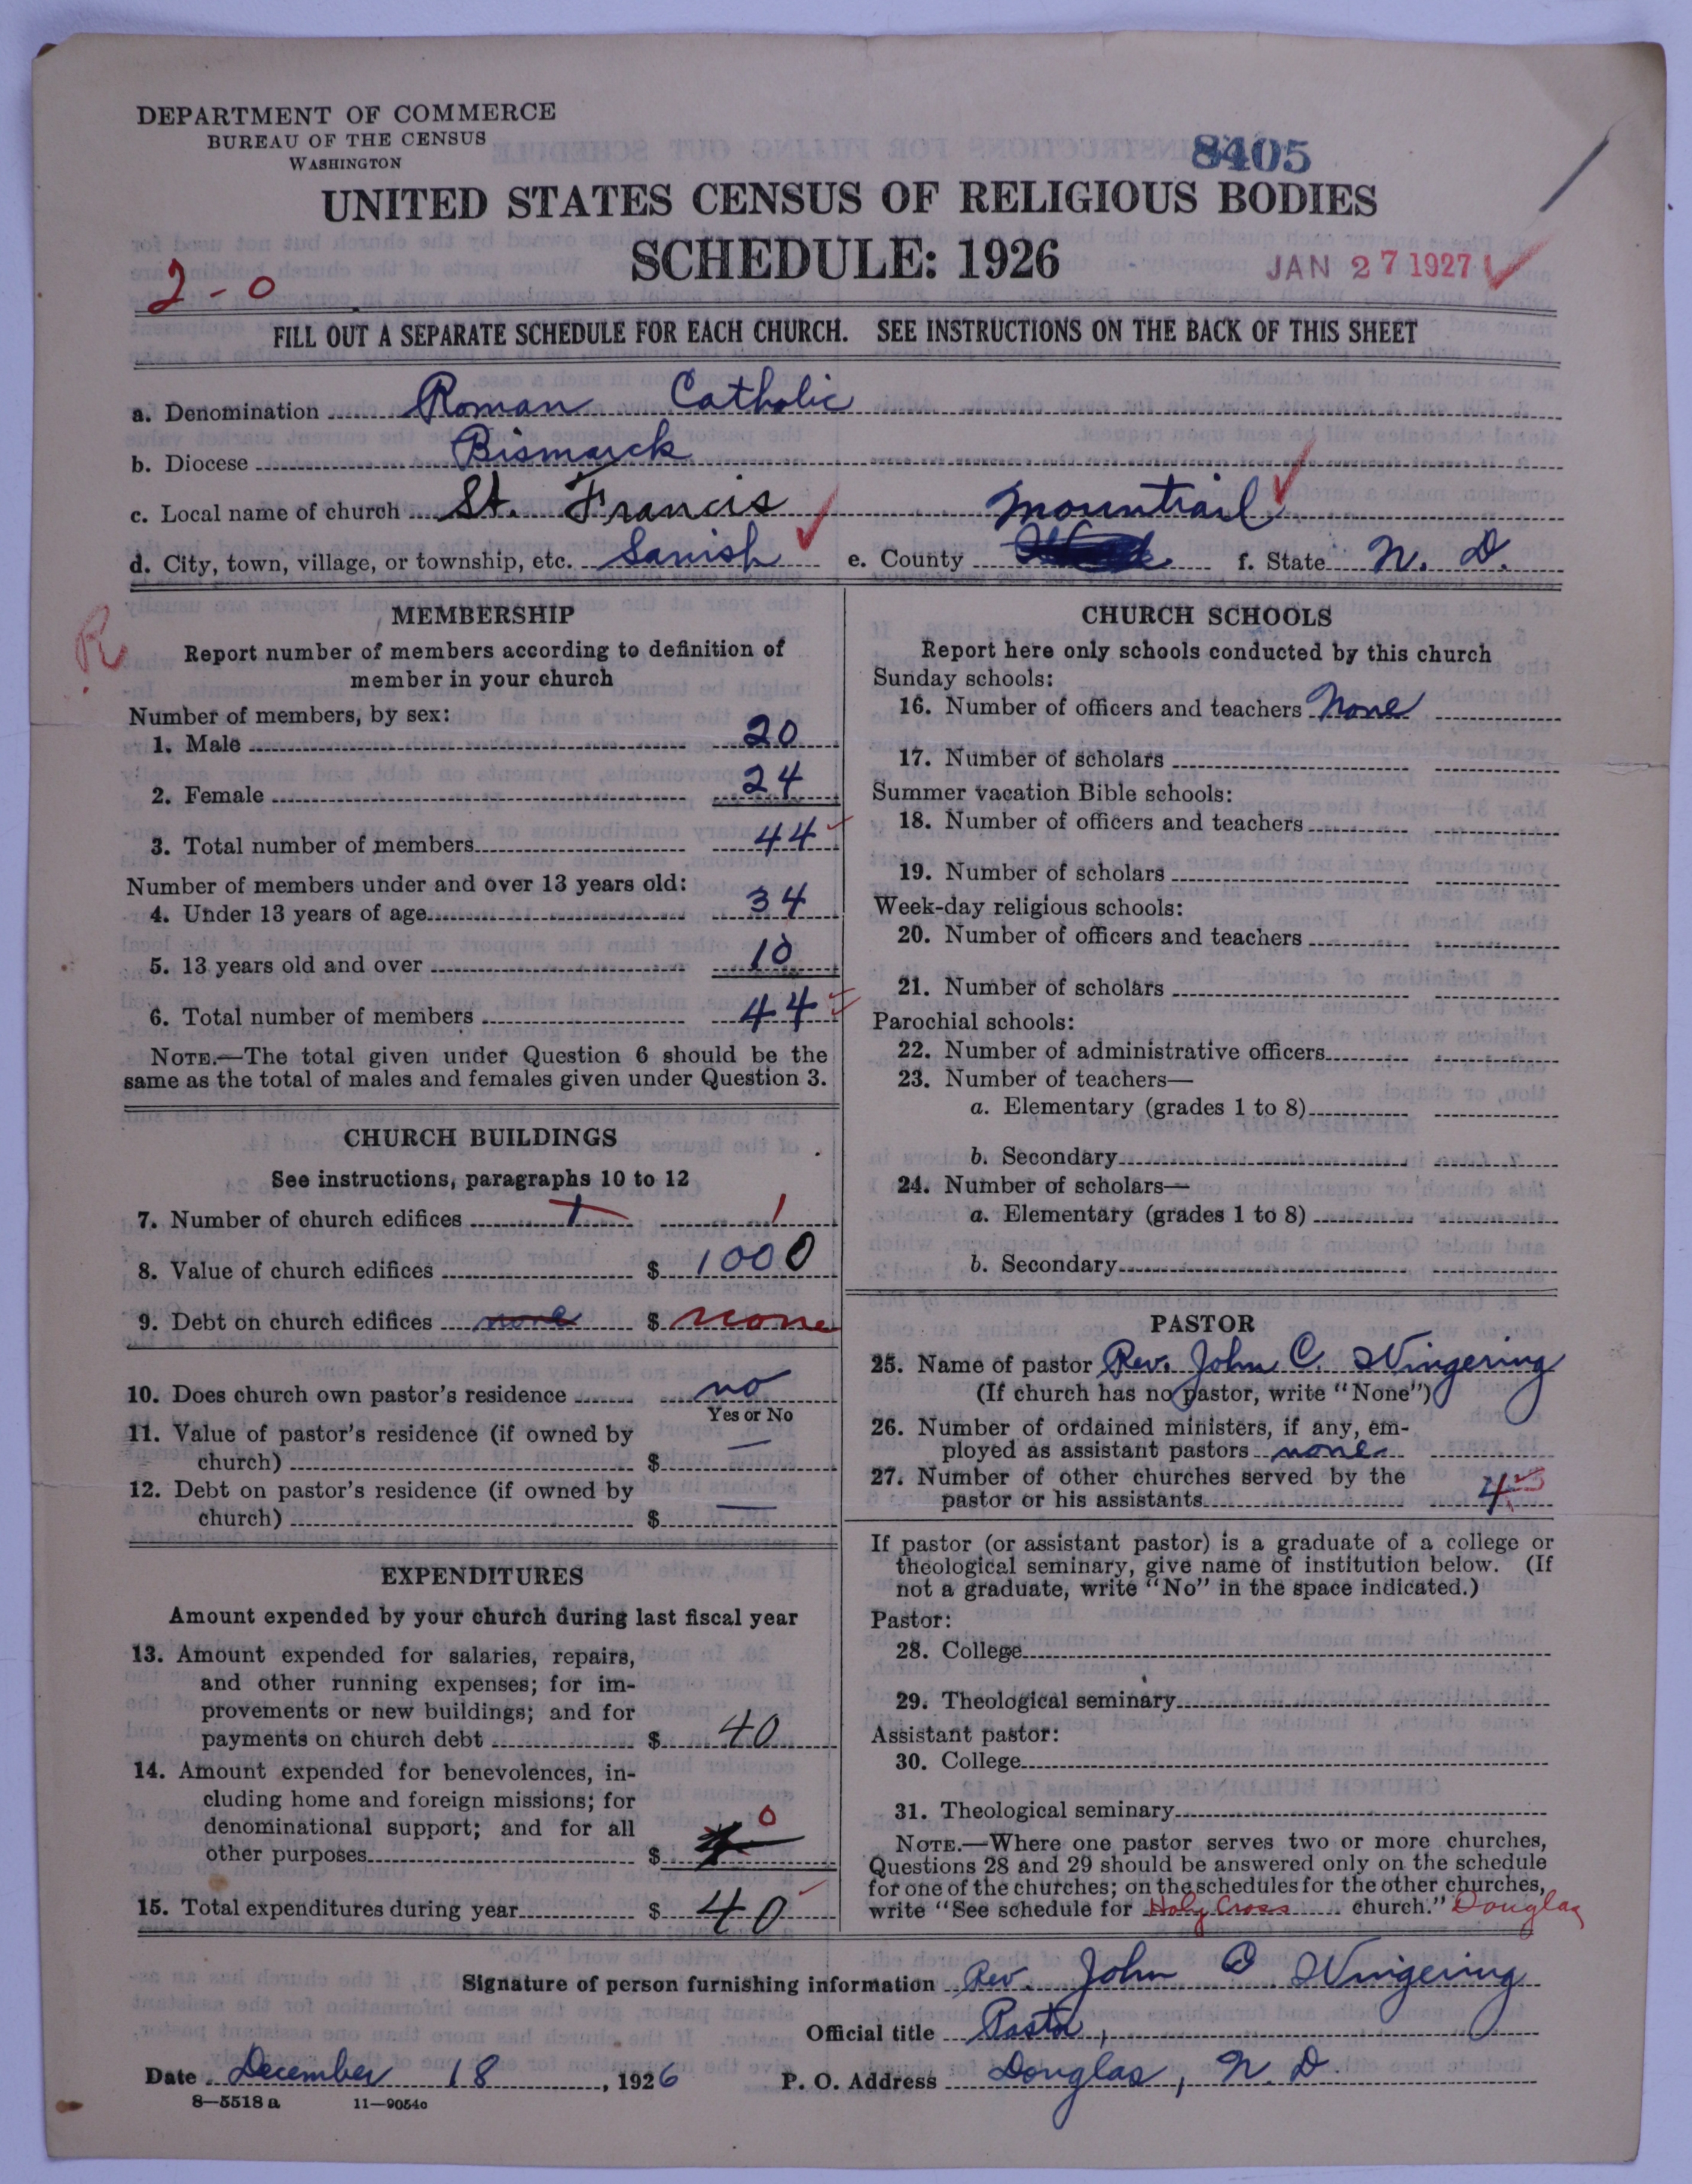 DEPARTMENT OF COMMERCE
BUREAU OF THE CENSUS
WASHINGTON
8405
UNITED STATES CENSUS OF RELIGIOUS BODIES
SCHEDULE: 1926
JAN 27 1927
2-0
FILL OUT A SEPARATE SCHEDULE FOR EACH CHURCH. SEE INSTRUCTIONS ON THE BACK OF THIS SHEET
a. Denomination Roman Catholic
b. Diocese Bismarck
c. Local name of church St. Francis
Mountrail
d. City, town, village, or township, etc. Sanish e. County f. State N. D.
R
MEMBERSHIP
Report number of members according to definition of
member in your church
Number of members, by sex:
1. Male 20
2. Female 24
3. Total number of members 44
Number of members under and over 13 years old:
4. Under 13 years of age 34
5. 13 years old and over 10
6. Total number of members 44
NOTE.—The total given under Question 6 should be the
same as the total of males and females given under Question 3.
CHURCH BUILDINGS
See instructions, paragraphs 10 to 12
7. Number of church edifices 1 1
8. Value of church edifices $ 1000
9. Debt on church edifices none $ none
10. Does church own pastor's residence no
Yes or No
11. Value of pastor's residence (if owned by
church) $ —
12. Debt on pastor's residence (if owned by
church) $ —
EXPENDITURES
Amount expended by your church during last fiscal year
13. Amount expended for salaries, repairs,
and other running expenses; for im-
provements or new buildings; and for
payments on church debt $ 40
14. Amount expended for benevolences, in-
cluding home and foreign missions; for
denominational support; and for all
other purposes $ 0
15. Total expenditures during year $ 40
CHURCH SCHOOLS
Report here only schools conducted by this church
Sunday schools:
16. Number of officers and teachers None
17. Number of scholars
Summer vacation Bible schools:
18. Number of officers and teachers
19. Number of scholars
Week-day religious schools:
20. Number of officers and teachers
21. Number of scholars
Parochial schools:
22. Number of administrative officers
23. Number of teachers—
a. Elementary (grades 1 to 8)
b. Secondary
24. Number of scholars—
a. Elementary (grades 1 to 8)
b. Secondary
PASTOR
25. Name of pastor Rev. John C. Wingering
(If church has no pastor, write "None")
26. Number of ordained ministers, if any, em-
ployed as assistant pastors none
27. Number of other churches served by the
pastor or his assistants 4
If pastor (or assistant pastor) is a graduate of a college or
theological seminary, give name of institution below. (If
not a graduate, write "No" in the space indicated.)
Pastor:
28. College
29. Theological seminary
Assistant pastor:
30. College
31. Theological seminary
NOTE.—Where one pastor serves two or more churches,
Questions 28 and 29 should be answered only on the schedule
for one of the churches; on the schedules for the other churches,
write "See schedule for Holy Cross church." Douglas
Signature of person furnishing information Rev. John C Wingering
Official title Pastor,
Date December 18, 1926 P. O. Address Douglas, N. D.
8—5518 a 11—9054c